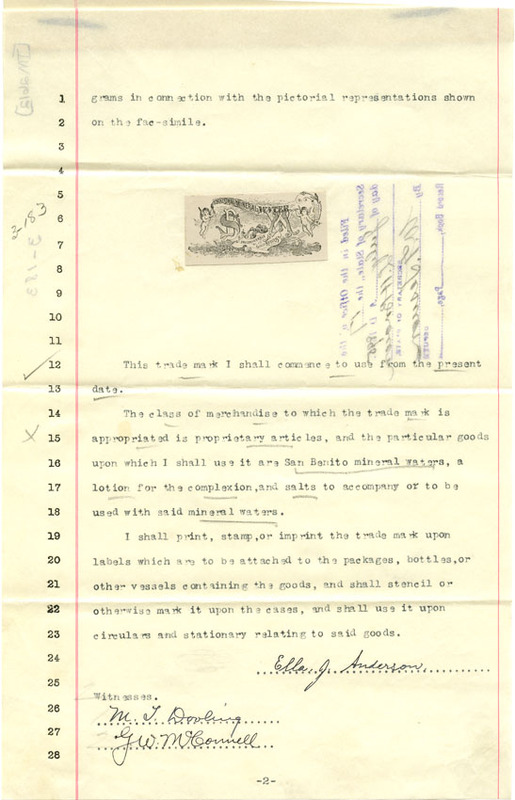 1 grams in connection with the pictorial representations shown
2 on the fac-simile.
3
4
5
6
7
8
9
10
11
12 This trade mark I shall commence to use from the present
13 date.
14 The class of merchandise to which the trade mark is
15 appropriated is proprietary articles, and the particular goods
16 upon which I shall use it are San Benito mineral waters, a
17 lotion for the complexion,and salts to accompany or to be
18 used with said mineral waters.
19 I shall print, stamp,or imprint the trade mark upon
20 labels which are to be attached to the packages, bottles,or
21 other vessels containing the goods, and shall stencil or
22 otherwise mark it upon the cases, and shall use it upon
23 circulars and stationary relating to said goods.
24 Ella J. Anderson
25 Witnesses.
26 M. T. Dowling
27 G. W. McConnell
28
-2-
3-183
Filed in the Office of the
Secretary of State, the
day of July A. D. 
SECRETARY OF STATE
By
DEPUTY
Record Book, Page